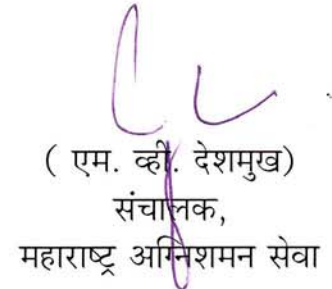 ( एम. व्ही. देशमुख)
संचालक,
महाराष्ट्र अग्निशमन सेवा